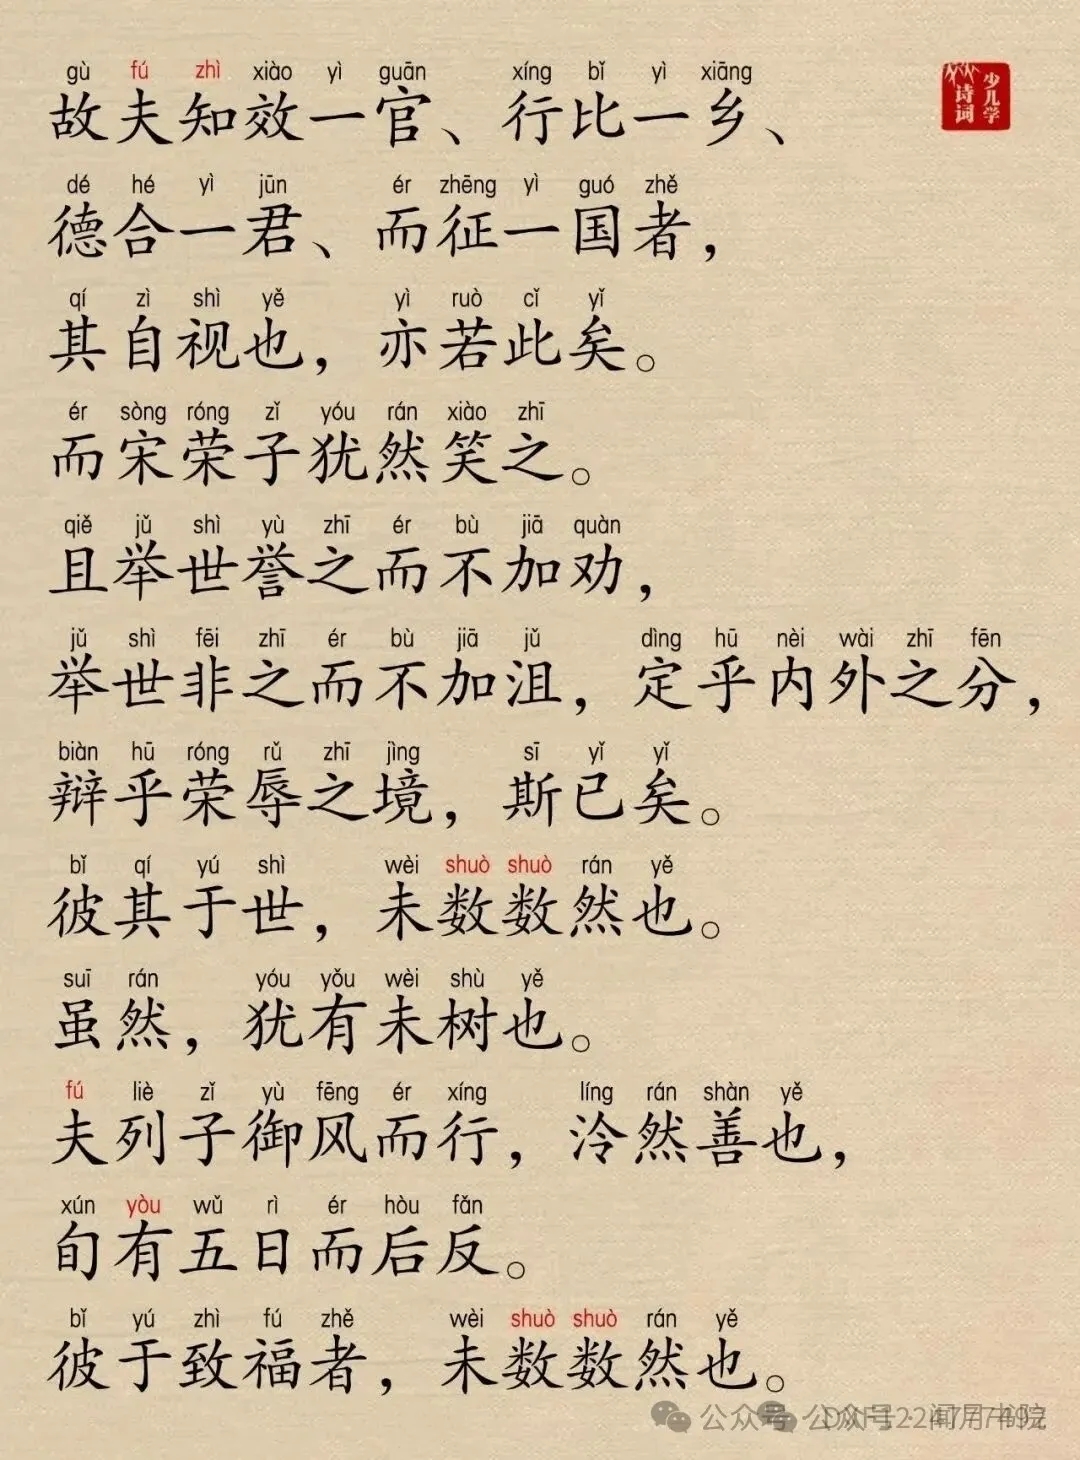 gù fú zhì xiào yì guān xíng bǐ yì xiāng
故夫知效一官、行比一乡、
dé hé yì jūn ér zhēng yì guó zhě
德合一君、而征一国者，
qí zì shì yě yì ruò cǐ yǐ
其自视也，亦若此矣。
ér sòng róng zǐ yóu rán xiào zhī
而宋荣子犹然笑之。
qiě jǔ shì yù zhī ér bù jiā quàn
且举世誉之而不加劝，
jǔ shì fēi zhī ér bù jiā jǔ dìng hū nèi wài zhī fēn
举世非之而不加沮，定乎内外之分，
biàn hū róng rǔ zhī jìng sī yǐ yǐ
辩乎荣辱之境，斯已矣。
bǐ qí yú shì wèi shuò shuò rán yě
彼其于世，未数数然也。
suī rán yóu yǒu wèi shù yě
虽然，犹有未树也。
fú liè zǐ yù fēng ér xíng líng rán shàn yě
夫列子御风而行，泠然善也，
xún yòu wǔ rì ér hòu fǎn
旬有五日而后反。
bǐ yú zhì fú zhě wèi shuò shuò rán yě
彼于致福者，未数数然也。
少儿学
诗词
公众号
公众号·闻月书院